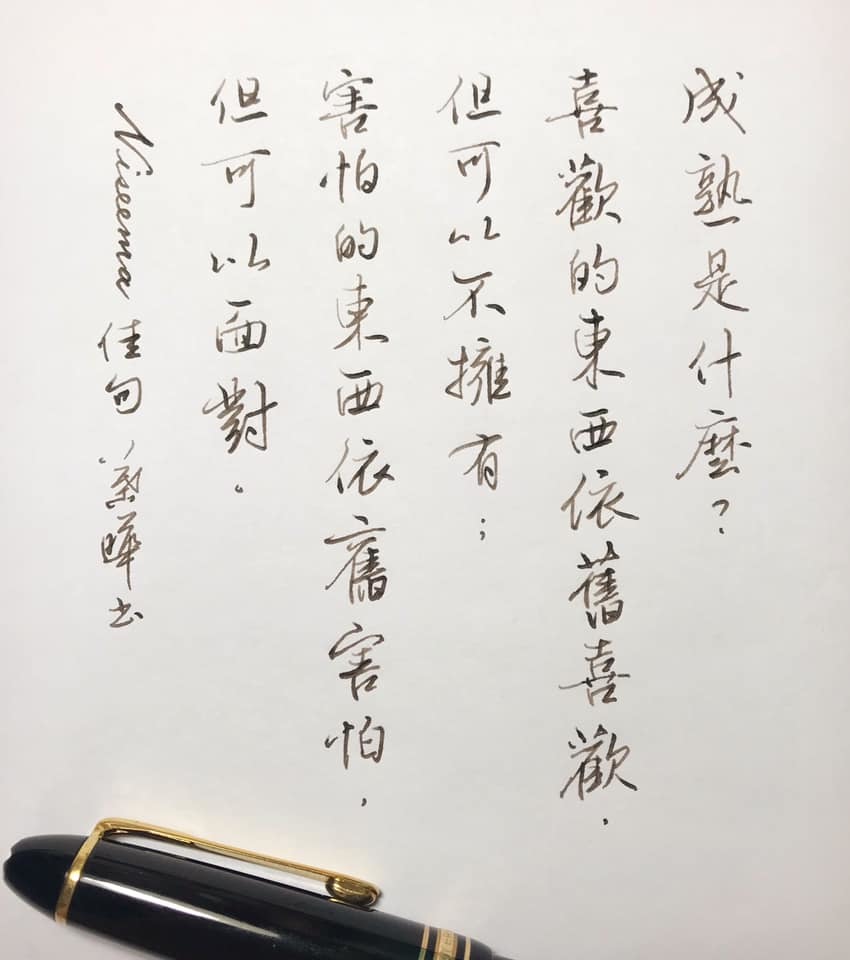 成熟是什麼？
喜歡的東西依舊喜歡，
但可以不擁有；
害怕的東西依舊害怕，
但可以面對。
佳句 葉曄書